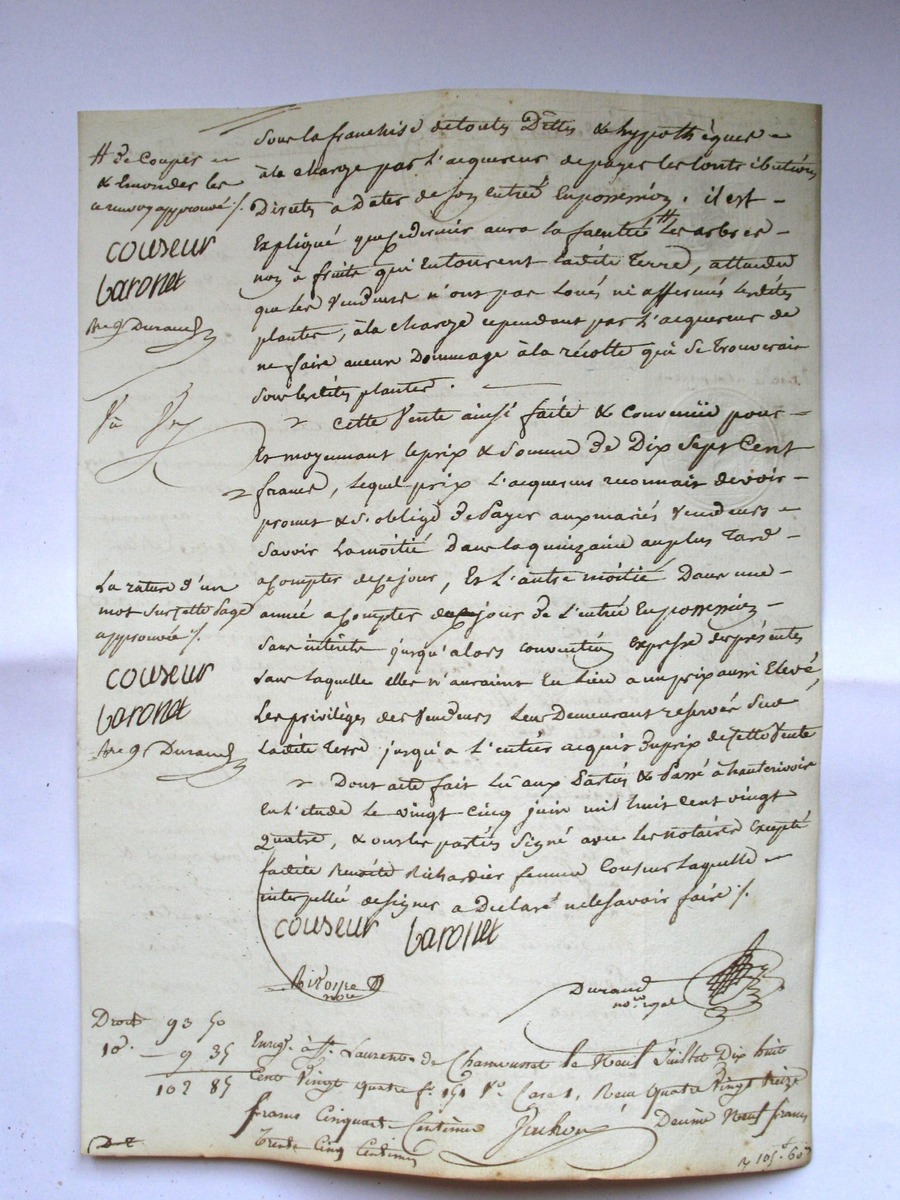 Sous la franchise de toutes Dettes & hypothèques
à la charge par l'acquereur de payer les Contributions
Directes à Dater de son entrée En possession. il est
Expliqué que ce dernier aura la faculté # les arbres
non à fruits qui Entourent ladite Terre, attendu
que les Vendeurs n'ont pas loués ni affermés lesdites
plantes, à la charge cependant par l'acquereur de
ne faire aucun Dommage à la récolte qui se trouverait
sous lesdites plantes.
# de Couper
& Emonder les
ce renvoy approuvé /.
couseur
baronet
Durand
Cette Vente ainsi faite & Convenüe pour
Et moyennant le prix & Somme de Dix Sept Cent
francs, lequel prix l'acquereur reconnait devoir
promet & S'oblige de Payer aux mariés Vendeurs
Savoir La moitié Dans la quinzaine au plus Tard
a Compter de ce jour, Et l'autre moitié Dans une
année a Compter du jour de l'entrée En possession
Sans intérêts jusqu'alors convention Expresse des présentes
Sans laquelle elles n'auraient Eu Lieu a un prix aussi Elevé,
Les privilèges des Vendeurs leur Demeurant reservés Sur
Ladite Terre jusqu'a l'entier acquit du prix de Cette Vente
La rature d'un
mot Sur cette page
approuvée /.
couseur
baronet
Durand
Dont acte fait Lu aux Parties & Passé à hauterivoire
En l'étude Le vingt Cinq juin mil huit Cent vingt
quatre, & ont les parties Signé avec les notaires Excepté
ladite Benoite Richardier femme Couseur Laquelle
interpellée de signer a Déclaré ne le savoir faire /.
couseur baronet
Durand
no.re royal
Droit 93 50
10.e 9 35
102 85
Enreg. à St. Laurent de Chamousset le Neuf Juillet Dix huit
Cent Vingt quatre f.o 151 V.o Case 1, Reçu Quatre Vingt treize
francs Cinquante Centimes Décime Neuf francs
Trente Cinq Centimes